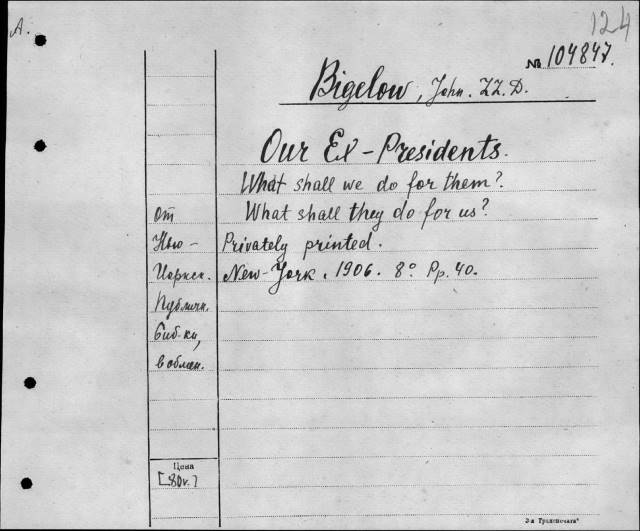 A.
124
№ 104847.
Bigelow, John. LL. D.
Our Ex-Presidents.
What shall we do for them?
What shall they do for us?
Privately printed.
New-York. 1906. 8° Pp. 40.
от
Нью-
Иоркск.
Публичн.
биб-ки,
в обмен.
Цена
[80v.]